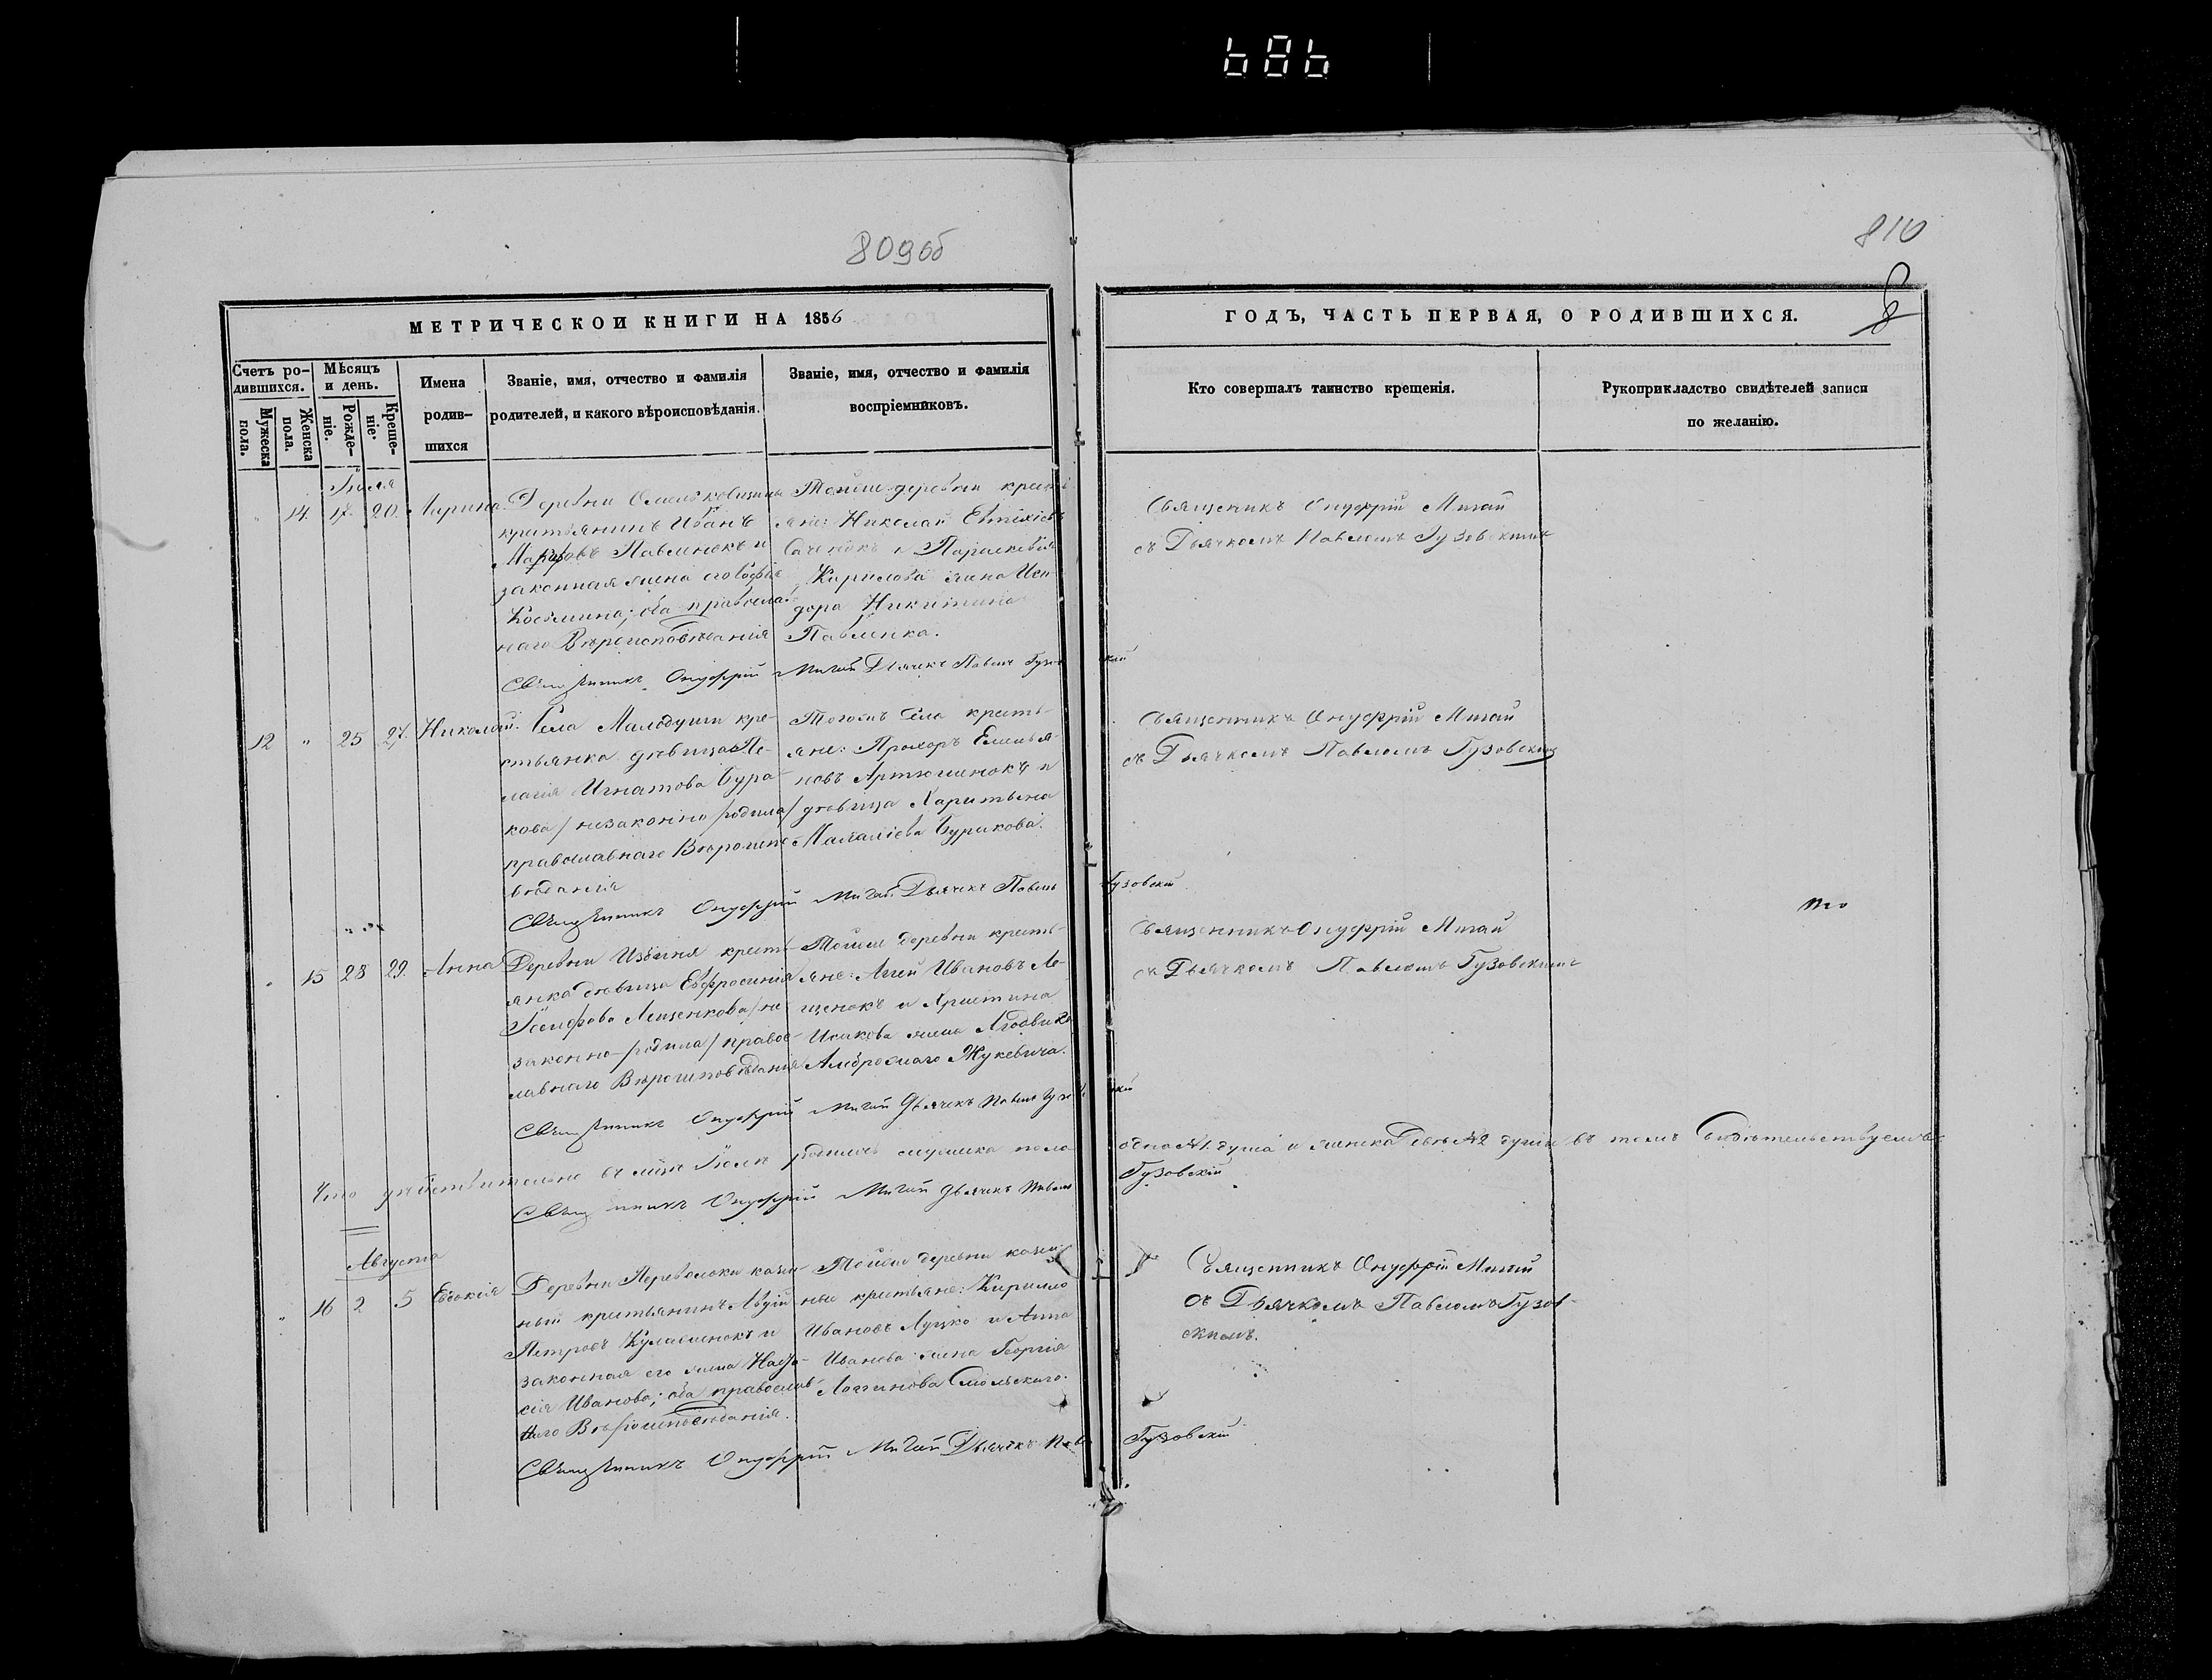 686
809об
810
8
МЕТРИЧЕСКОЙ КНИГИ НА 1856
ГОДЪ, ЧАСТЬ ПЕРВАЯ, О РОДИВШИХСЯ.
Счетъ ро-
дившихся.
Мужеска
пола.
Женска
пола.
Мѣсяцъ
и день.
Рожде-
ніе.
Креще-
ніе.
Имена
родив-
шихся
Званіе, имя, отчество и фамилія
родителей, и какого вѣроисповѣданія.
Званіе, имя, отчество и фамилія
воспріемниковъ.
Кто совершалъ таинство крещенія.
Рукоприкладство свидѣтелей записи
по желанію.
Іюля
14. 17. 20. Марина
Деревни
крестьянинъ Иванъ
Павленокъ и
законная жена его Софія
Космина; оба православ-
наго Вѣроисповѣданія
Тойже деревни кресть
яне: Николай Евтихіевъ
и Параскевія
Кирилова жена Иси-
дора Никитина
Павленка.
Священникъ Онуфрій Мигай
съ Дьячкомъ Павломъ Гузовскимъ
Священникъ Онуфрій Мигай Дьячекъ Павелъ Гузовскій
12 " 25 27. Николай.
Села Малодуши кре-
стьянка дѣвица Пе-
лагія Игнатова Бура-
кова / незаконно родила /
православнаго Вѣроиспо-
вѣданія
Тогожъ села кресть-
яне: Прохоръ Емелья-
новъ Артюшенокъ и
дѣвица Харитына
Буракова.
Священникъ Онуфрій Мигай
съ Дьячкомъ Павломъ Гузовскимъ
Священникъ Онуфрій Мигай Дьячекъ Павелъ Гузовскій
" 15 28 29. Анна
Деревни Избыня кресть-
янка дѣвица Евфросинія
Іосифова Лещенкова / не
законно родила / правос-
лавнаго Вѣроисповѣданія
Тойже деревни кресть-
яне: Ивановъ Ле-
щенокъ и Христина
Исакова жена
Жукевича.
Священникъ Онуфрій Мигай
съ Дьячкомъ Павломъ Гузовскимъ
Священникъ Онуфрій Мигай Дьячекъ Павелъ Гузовскій
Что дѣйствительно въ м-цѣ Іюлѣ родилось мужска пола одна №1 душа и женска двѣ №2 души въ томъ Свидѣтельствуемъ
Священникъ Онуфрій Мигай Дьячекъ Павелъ Гузовскій
Августа
" 16 2 5 Евдокія
Деревни Переволоки казен-
ный крестьянинъ
Петровъ и
законная его жена Наста-
сія Иванова; оба православ-
наго Вѣроисповѣданія.
Тойже деревни казен-
ные крестьяне: Кирилло
Ивановъ Луцко и Анна
Иванова жена Георгія
Логинова Смольскаго.
Священникъ Онуфрій Мигай
съ Дьячкомъ Павломъ Гузов-
скимъ.
Священникъ Онуфрій Мигай Дьячекъ Павелъ Гузовскій